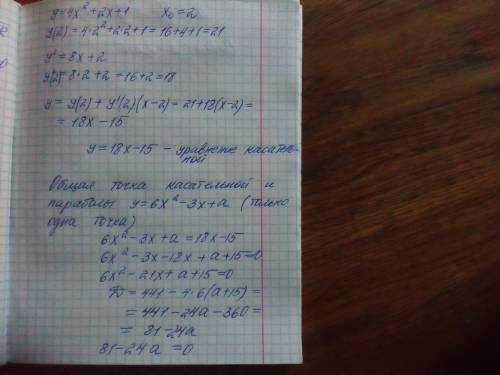 y=4x²+2x+1   x₀=2
y(2)=4·2²+2·2+1=16+4+1=21
y'=8x+2
y'(2)=8·2+2=16+2=18
y=y(2)+y'(2)(x-2)=21+18(x-2)=
=18x-15
y=18x-15 - уравнение касатель-
ной
Общая точка касательной и
параболы y=6x²-3x+a (только
одна точка)
6x²-3x+a=18x-15
6x²-3x-18x+a+15=0
6x²-21x+a+15=0
D=441-4·6(a+15)=
=441-24a-360=
=81-24a
81-24a=0